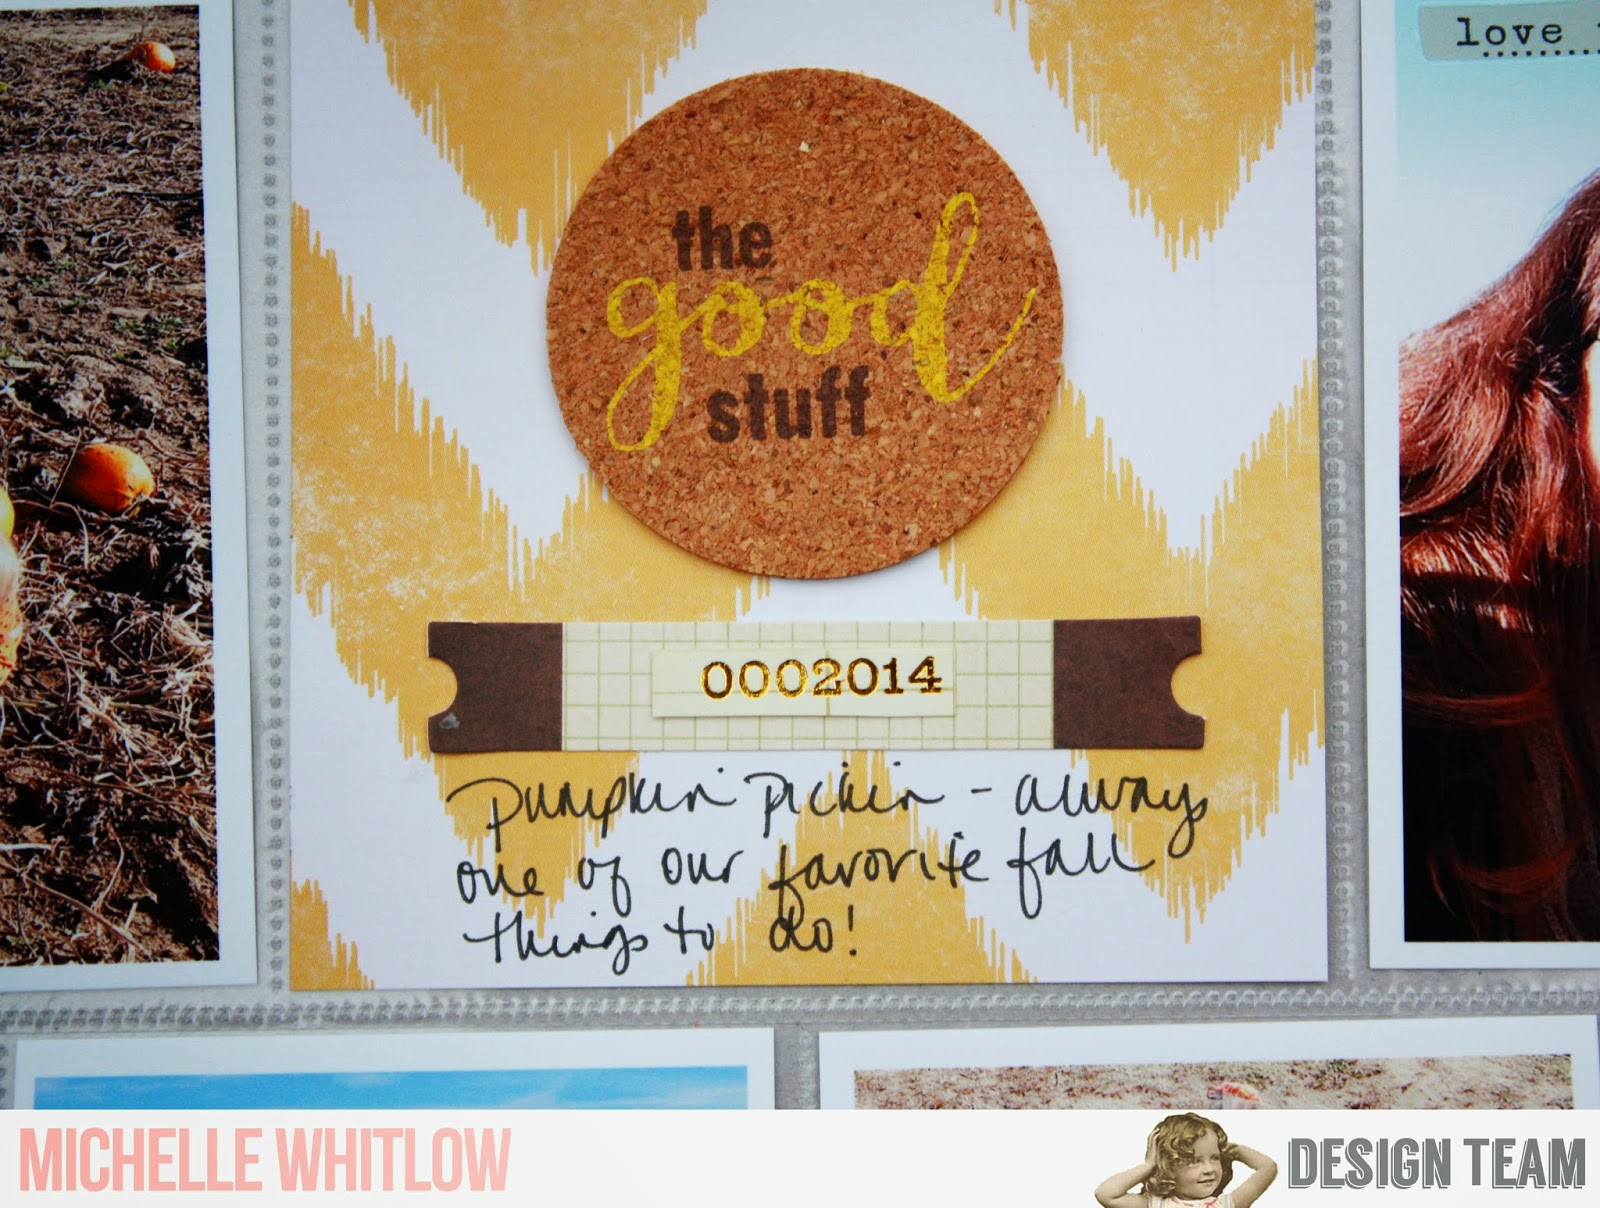 love
the
good
stuff
0002014
pumpkin pickin - always
one of our favorite fall
things to do!
MICHELLE WHITLOW
DESIGN TEAM